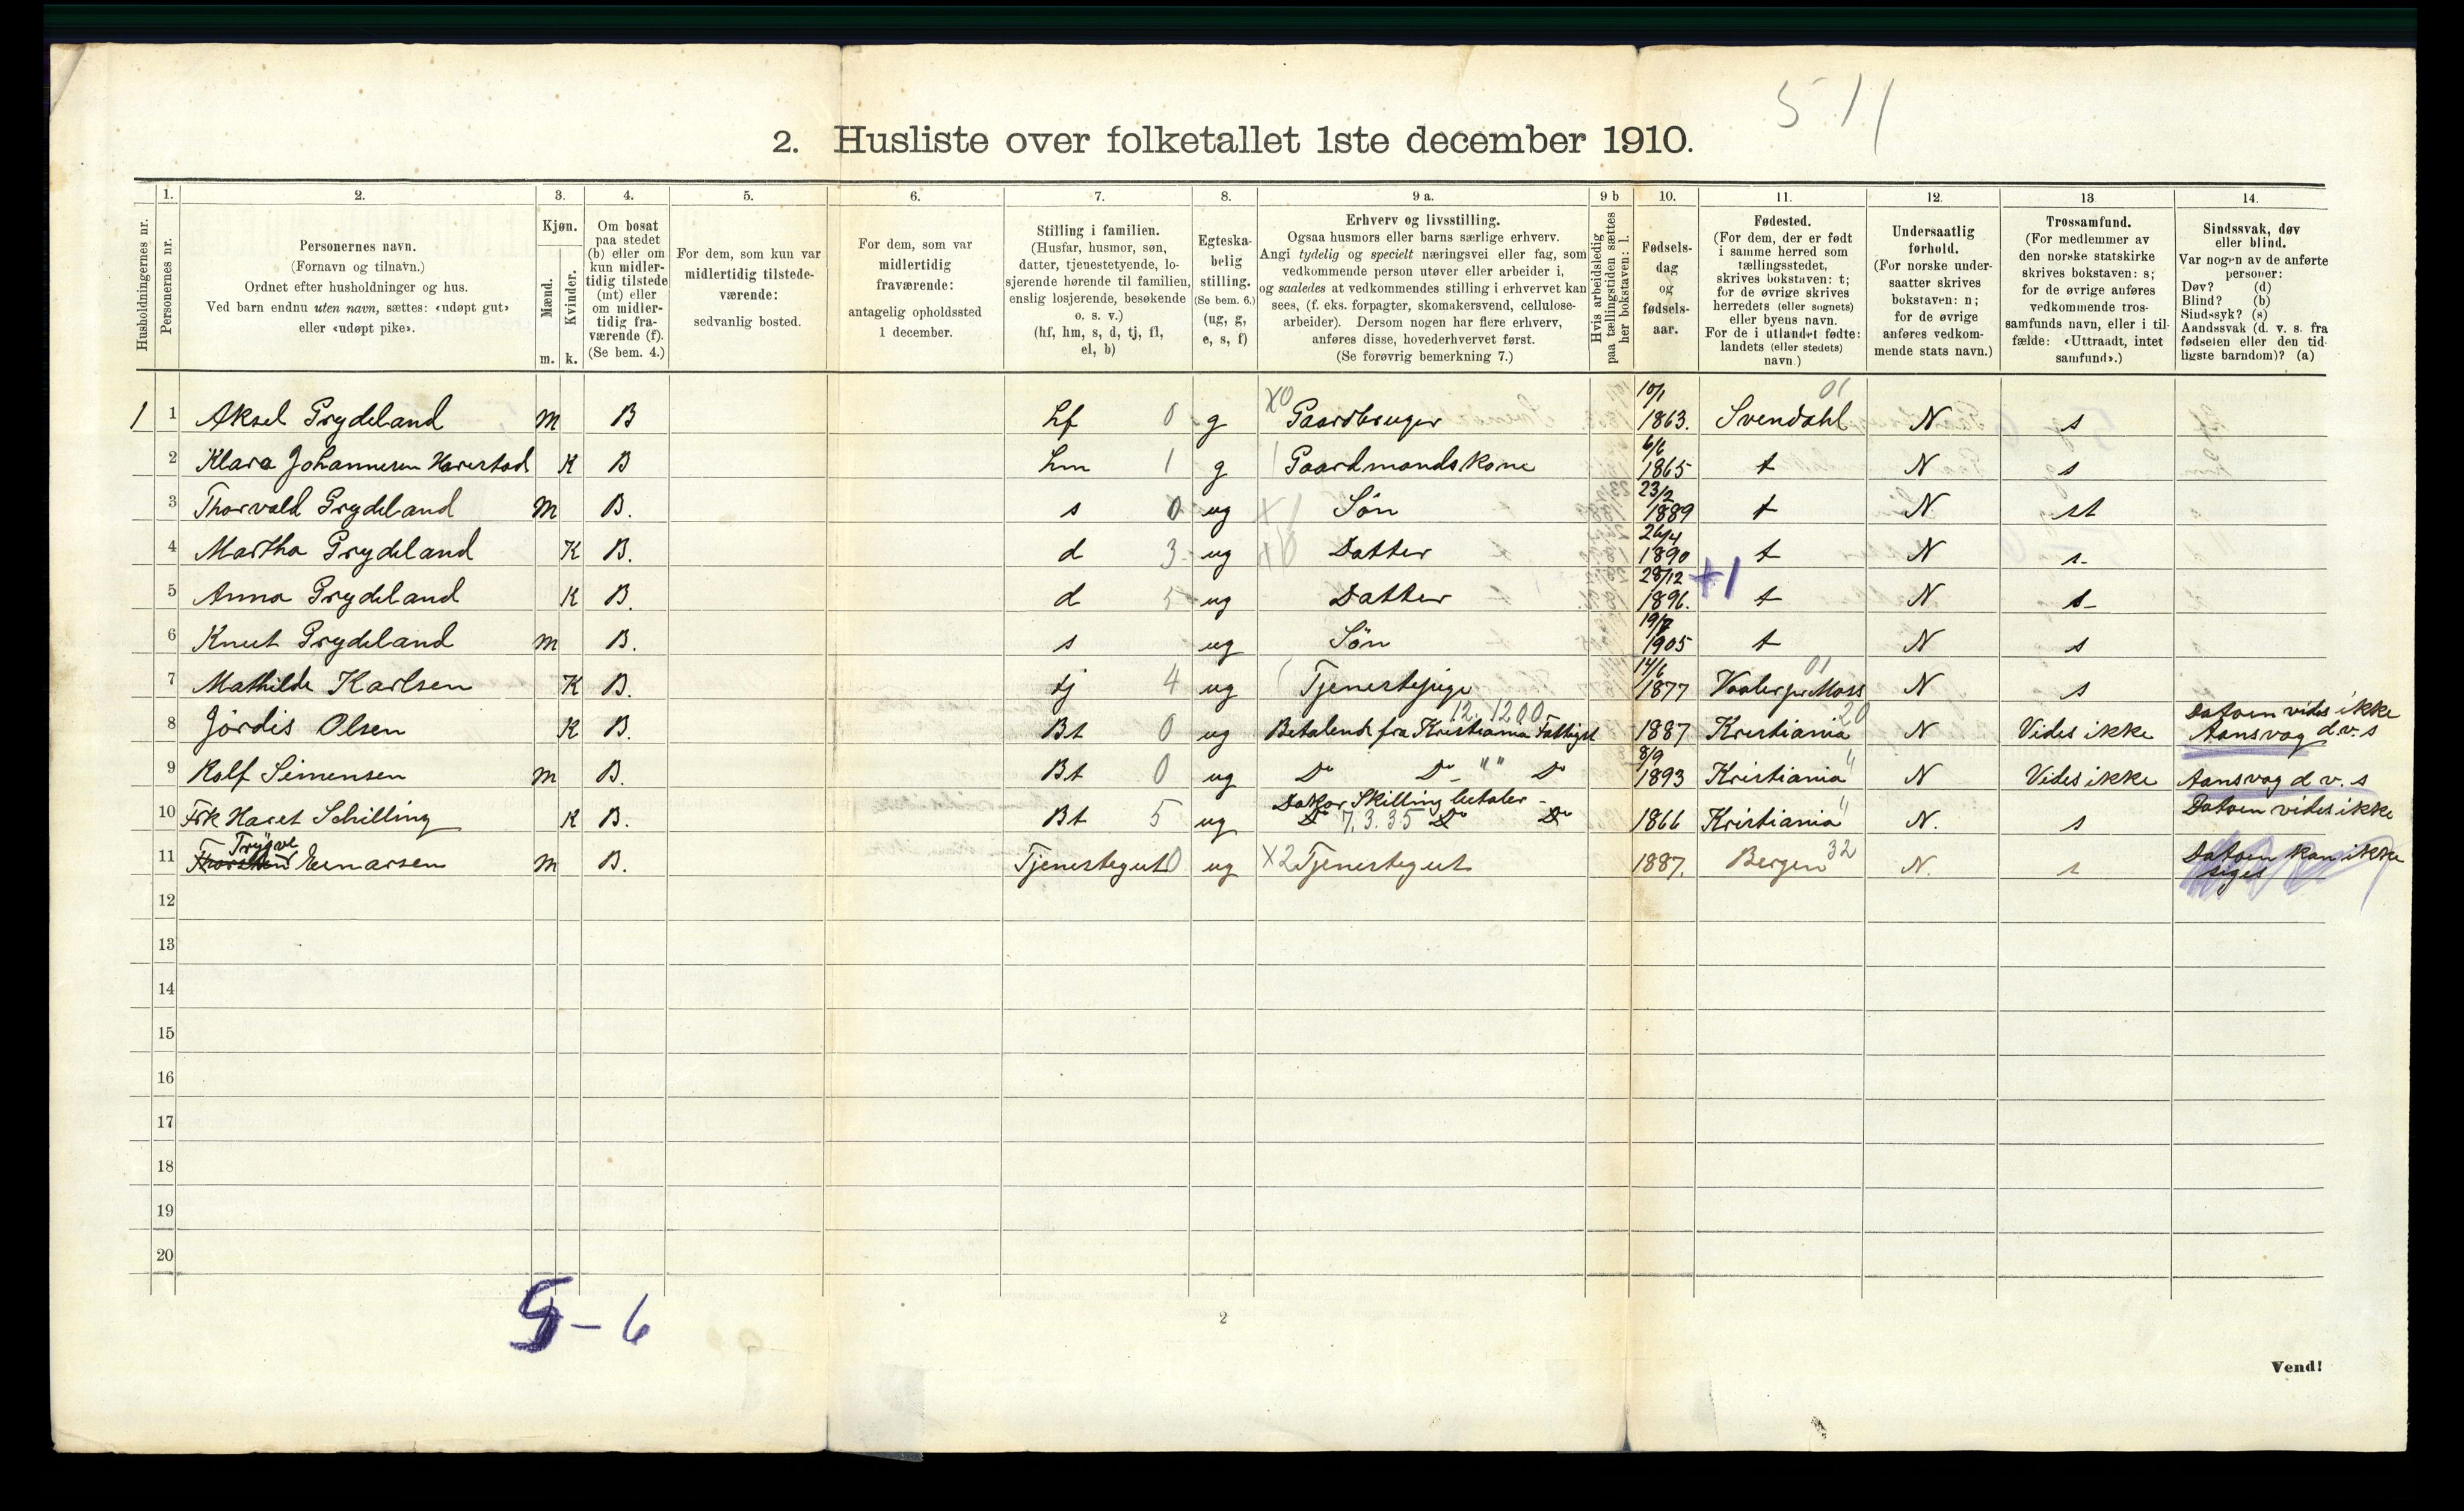 5 11
2. Husliste over folketallet 1ste december 1910.
Husholdningernes nr.
1.
Personernes nr.
2.
Personernes navn.
(Fornavn og tilnavn.)
Ordnet efter husholdninger og hus.
Ved barn endnu uten navn, sættes: «udøpt gut»
eller «udøpt pike».
3.
Kjøn.
Mænd.
Kvinder.
m. k.
4.
Om bosat
paa stedet
(b) eller om
kun midler-
tidig tilstede
(mt) eller
om midler-
tidig fra-
værende (f).
(Se bem. 4.)
5.
For dem, som kun var
midlertidig tilstede-
værende:
sedvanlig bosted.
6.
For dem, som var
midlertidig
fraværende:
antagelig opholdssted
1 december.
7.
Stilling i familien.
(Husfar, husmor, søn,
datter, tjenestetyende, lo-
sjerende hørende til familien,
enslig losjerende, besøkende
o. s. v.)
(hf, hm, s, d, tj, fl,
el, b)
8.
Egteska-
belig
stilling.
(Se bem. 6.)
(ug, g,
e, s, f)
9 a.
Erhverv og livsstilling.
Ogsaa husmors eller barns særlige erhverv.
Angi tydelig og specielt næringsvei eller fag, som
vedkommende person utøver eller arbeider i,
og saaledes at vedkommendes stilling i erhvervet kan
sees, (f. eks. forpagter, skomakersvend, cellulose-
arbeider). Dersom nogen har flere erhverv,
anføres disse, hovederhvervet først.
(Se forøvrig bemerkning 7.)
9 b
Hvis arbeidsledig
paa tællingstiden sættes
her bokstaven: l.
10.
Fødsels-
dag
og
fødsels-
aar.
11.
Fødested.
(For dem, der er født
i samme herred som
tællingsstedet,
skrives bokstaven: t;
for de øvrige skrives
herredets (eller sognets)
eller byens navn.
For de i utlandet fødte:
landets (eller stedets)
navn.)
12.
Undersaatlig
forhold.
(For norske under-
saatter skrives
bokstaven: n;
for de øvrige
anføres vedkom-
mende stats navn.)
13
Trossamfund.
(For medlemmer av
den norske statskirke
skrives bokstaven: s;
for de øvrige anføres
vedkommende tros-
samfunds navn, eller i til-
fælde: «Uttraadt, intet
samfund».)
14.
Sindssvak, døv
eller blind.
Var nogen av de anførte
personer:
Døv? (d)
Blind? (b)
Sindssyk? (s)
Aandssvak (d. v. s. fra
fødselen eller den tid-
ligste barndom)? (a)
1 1 Aksel Prydeland m B hf 0 g X0 Gaardbruger 10/1 1863. Svendahl 01 N s
2 Klara Johannesen Harestad K B hm 1 g 1 Gaardmandskone 6/6 1865 t N s
3 Thorvald Prydeland m B. s 0 ug X1 Søn 23/2 1889 t N st
4 Martha Prydeland K B. d 3 ug X0 Datter 26/4 1890 t N s.
5 Anna Prydeland K B. d 5 ug Datter 28/12 1896. +1 t N s
6 Knut Prydeland m B. s ug Søn 19/7 1905 t N s
7 Mathilde Karlsen K B. tj 4 ug Tjenestepige 14/6 1877 Vaaler pr Moss 01 N s
8 Jördis Olsen K B. Bt 0 ug Betalende fra Kristiania Fattigst 12.1200 1887 Kristiania 20 N Vides ikke Datoen vides ikke Aansvag d v. s
9 Rolf Simensen m B. Bt 0 ug Do Do " " Do 8/9 1893 Kristiania " N Vides ikke Aansvag d v. s
10 Frk Haret Schilling K B. Bt 5 ug Doktor Skilling betaler Do 7.3.35 Do Do 1866 Kristiania " N. s Datoen vides ikke
11 Trygve Einarsen m B. Tjenestegut 0 ug X2 Tjenestegut 1887. Bergen 32 N. s Datoen kan ikke siges
12
13
14
15
16
17
18
19
20
5-6
2
Vend!